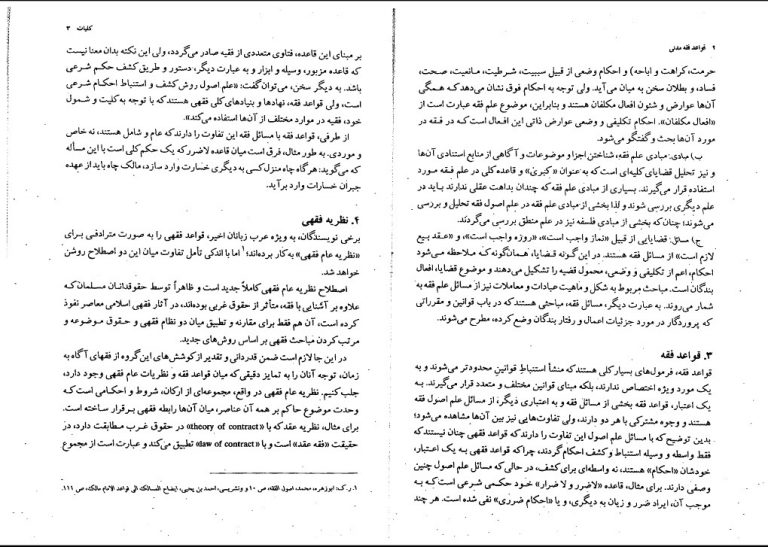 ۲ قواعد فقه مدنی
حرمت، کراهت و اباحه) و احکام وضعی از قبیل سببیت، شرطیت، مانعیت، صحت،
فساد، و بطلان سخن به میان می‌آید. ولی توجه به احکام فوق نشان می‌دهد که همگی
آن‌ها عوارض و شئون افعال مکلفان هستند و بنابراین، موضوع علم فقه عبارت است از
«افعال مکلفان». احکام تکلیفی و وضعی عوارض ذاتی این افعال است که در فقه در
مورد آن‌ها بحث و گفتگو می‌شود.
ب) مبادی: مبادی علم فقه، شناختن اجزا و موضوعات و آگاهی از منابع استنادی آن‌ها
و نیز تحلیل قضایای کلیه‌ای است که به عنوان «کبری» و قاعده کلی در علم فقه مورد
استفاده قرار می‌گیرند. بسیاری از مبادی علم فقه که چندان بداهت عقلی ندارند باید در
علم دیگری بررسی شوند و لذا بخشی از مبادی علم فقه در علم اصول فقه تحلیل و بررسی
می‌شوند؛ چنان که بخشی از مبادی فلسفه نیز در علم منطق بررسی می‌گردند.
ج) مسائل: قضایایی از قبیل «نماز واجب است»، «روزه واجب است»، و «عقد بیع
لازم است» از مسائل فقه هستند. در این‌گونه قضایا، همان‌گونه که ملاحظه می‌شود
احکام، اعم از تکلیفی و وضعی، محمول قضیه را تشکیل می‌دهند و موضوع قضایا، افعال
بندگان است. مباحث مربوط به شکل و ماهیت عبادات و معاملات نیز از مسائل علم فقه به
شمار می‌روند. به عبارت دیگر، مسائل فقه، مباحثی هستند که در باب قوانین و مقرراتی
که پروردگار در مورد جزئیات اعمال و رفتار بندگان وضع کرده، مطرح می‌شوند.
۳. قواعد فقه
قواعد فقه، فرمول‌های بسیار کلی هستند که منشأ استنباط قوانین محدودتر می‌شوند و به
یک مورد ویژه اختصاص ندارند، بلکه مبنای قوانین مختلف و متعدد قرار می‌گیرند. به
یک اعتبار، قواعد فقه بخشی از مسائل فقه و به اعتباری دیگر، از مسائل علم اصول فقه
هستند و وجوه مشترکی با هر دو دارند، ولی تفاوت‌هایی نیز بین آن‌ها مشاهده می‌شود؛
بدین توضیح که با مسائل علم اصول این تفاوت را دارند که قواعد فقهی چنان نیستند که
فقط واسطه و وسیله استنباط و کشف احکام گردند، چراکه قواعد فقهی به یک اعتبار،
خودشان «احکام» هستند، نه واسطه‌ای برای کشف، در حالی که مسائل علم اصول چنین
وصفی دارند. برای مثال، قاعده «لاضرر و لا ضرار» خود حکمی شرعی است که به
موجب آن، ایراد ضرر و زیان به دیگری، و یا «احکام ضرری» نفی شده است. هر چند
کلیات ۳
بر مبنای این قاعده، فتاوی متعددی از فقیه صادر می‌گردد، ولی این نکته بدان معنا نیست
که قاعده مزبور، وسیله و ابزار و به عبارت دیگر، دستور و طریق کشف حکم شرعی
باشد. به دیگر سخن، می‌توان گفت: «علم اصول روش کشف و استنباط احکام شرعی
است، ولی قواعد فقه، نهادها و بنیادهای کلی فقهی هستند که با توجه به کلیت و شمول
خود، فقیه در موارد مختلف از آن‌ها استفاده می‌کند».
از طرفی، قواعد فقه با مسائل فقه این تفاوت را دارند که عام و شامل هستند، نه خاص
و موردی. به طور مثال، فرق است میان قاعده لاضرر که یک حکم کلی است با این مسأله
که می‌گوید: هرگاه چاه منزل کسی به دیگری خسارت وارد سازد، مالک چاه باید از عهده
جبران خسارات وارد برآید.
۴. نظریه فقهی
برخی نویسندگان، به ویژه عرب زبانان اخیر، قواعد فقهی را به صورت مترادفی برای
«نظریه عام فقهی» به کار برده‌اند؛۱ اما با اندکی تأمل تفاوت میان این دو اصطلاح روشن
خواهد شد.
اصطلاح نظریه عام فقهی کاملاً جدید است و ظاهراً توسط حقوقدانان مسلمان که
علاوه بر آشنایی با فقه، متأثر از حقوق غربی بوده‌اند، در آثار فقهی اسلامی معاصر نفوذ
کرده است، آن هم فقط برای مقارنه و تطبیق میان دو نظام فقهی و حقوق موضوعه و
مرتب کردن مباحث فقهی بر اساس روش‌های جدید.
در این جا لازم است ضمن قدردانی و تقدیر از کوشش‌های این گروه از فقهای آگاه به
زمان، توجه آنان را به تمایز دقیقی که میان قواعد فقه و نظریات عام فقهی وجود دارد،
جلب کنیم. نظریه عام فقهی در واقع، مجموعه‌ای از ارکان، شروط و احکامی است که
وحدت موضوع حاکم بر همه آن عناصر، میان آن‌ها رابطه فقهی برقرار ساخته است.
برای مثال، نظریه عقد که با «theory of contract» در حقوق غرب مطابقت دارد، در
حقیقت «فقه عقد» است و با «law of contract» تطبیق می‌کند و عبارت است از مجموع
۱. ر.ک: ابوزهره، محمد، اصول الفقه، ص ۱۰ و ونشریسی، احمد بن یحیی، ایضاح المسالک الی قواعد الامام مالک، ص ۱۱۱.